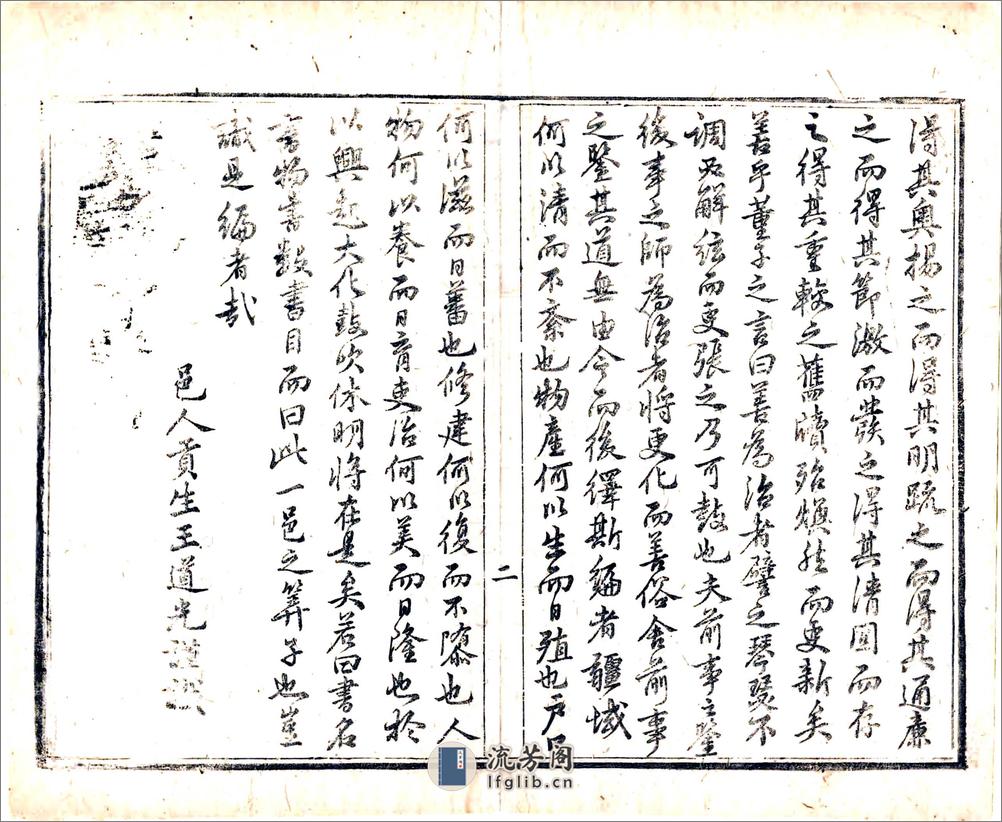 得其奥揚之而得其明疏之而得其通廉
之而得其節激而裁之得其清固而存
之得其重較之舊牘殆煥然而更新矣
善乎董子之言曰善為治者譬之琴瑟不
調必解絃而更張之乃可鼓也夫前事之鑒
後事之師為治者將更化而善俗舍前事
之鑒其道無由今而後繹斯編者疆域
何以清而不紊也物產何以生而日殖也戶口
何以滋而日蕃也修建何以復而不隳也人
物何以養而日育吏治何以美而日隆也於
以興起大化鼓吹休明將在是矣若曰書名
書物書數書目而曰此一邑之筭子也豈
識是編者哉
邑人貢生王道光謹識
二
流芳阁
lfglib.cn